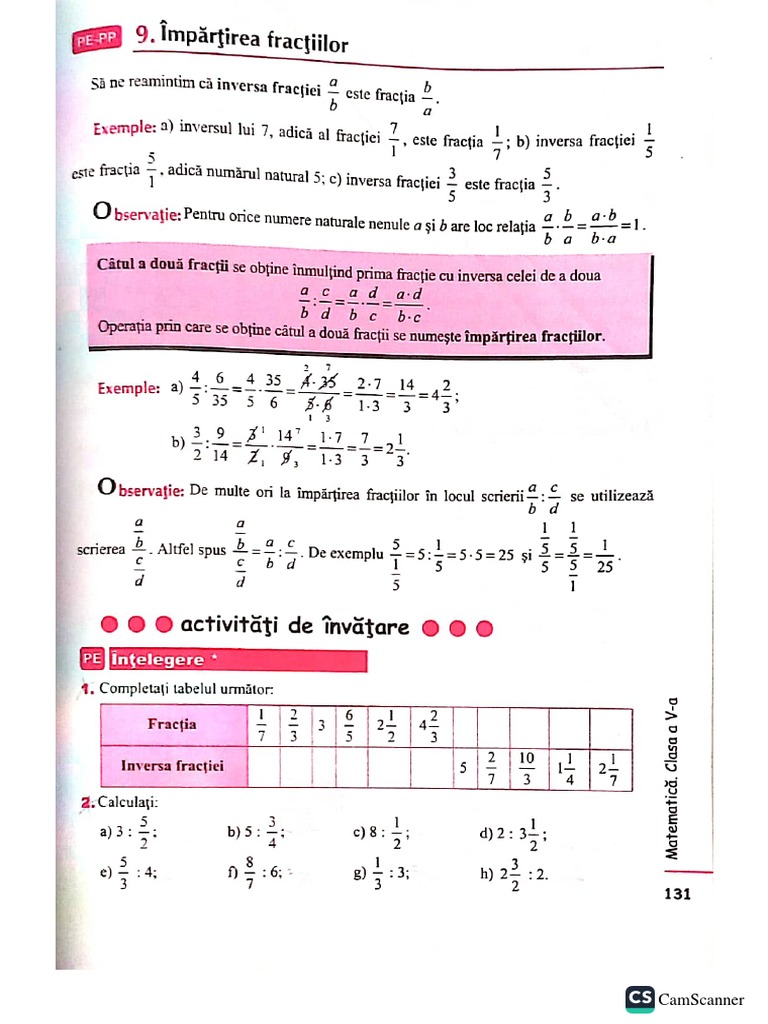 PE-PP 9. Împărţirea fracţiilor
Să ne reamintim că inversa fracţiei a/b este fracţia b/a.
Exemple: a) inversul lui 7, adică al fracţiei 7/1, este fracţia 1/7; b) inversa fracţiei 1/5
este fracţia 5/1, adică numărul natural 5; c) inversa fracţiei 3/5 este fracţia 5/3.
Observaţie: Pentru orice numere naturale nenule a şi b are loc relaţia a/b · b/a = a·b/b·a = 1.
Câtul a două fracţii se obţine înmulţind prima fracţie cu inversa celei de a doua
a/b : c/d = a/b · d/c = a·d/b·c.
Operaţia prin care se obţine câtul a două fracţii se numeşte împărţirea fracţiilor.
Exemple: a) 4/5 : 6/35 = 4/5 · 35/6 = 4·35/5·6 = 2·7/1·3 = 14/3 = 4 2/3;
b) 3/2 : 9/14 = 3 1/2 1 · 14 7/9 3 = 1·7/1·3 = 7/3 = 2 1/3.
Observaţie: De multe ori la împărţirea fracţiilor în locul scrierii a/b : c/d se utilizează
scrierea (a/b)/(c/d). Altfel spus (a/b)/(c/d) = a/b : c/d. De exemplu 5/(1/5) = 5 : 1/5 = 5·5 = 25 şi (1/5)/5 = (1/5)/(5/1) = 1/25.
activităţi de învăţare
PE Înţelegere *
1. Completaţi tabelul următor:
Fracţia 1/7 2/3 3 6/5 2 1/2 4 2/3
Inversa fracţiei 5 2/7 10/3 1 1/4 2 1/7
2. Calculaţi:
a) 3 : 5/2; b) 5 : 3/4; c) 8 : 1/2; d) 2 : 3 1/2;
e) 5/3 : 4; f) 8/7 : 6; g) 1/3 : 3; h) 2 3/2 : 2.
Matematică. Clasa a V-a
131
CS CamScanner